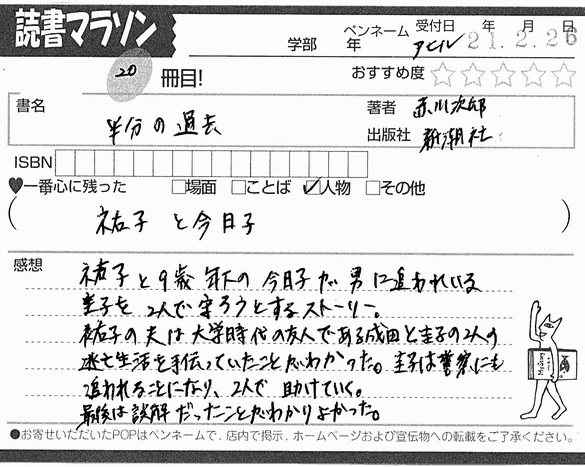 読書マラソン
学部 年 ペンネーム アヒル 受付日 21.2.26 年 月 日
20 冊目!
おすすめ度 ☆☆☆☆☆
書名 半分の過去
著者 赤川次郎
出版社 新潮社
ISBN
♥一番心に残った □場面 □ことば ☑人物 □その他
( 祐子と今日子 )
感想
祐子と9歳年下の今日子が男に追われている
圭子を2人で守ろうとするストーリー。
祐子の夫は大学時代の友人である成田と圭子の2人の
逃亡生活を手伝っていたことがわかった。圭子は警察にも
追われることになり、2人で助けていく。
最後は誤解だったことがわかりよかった。
Mystery
●お寄せいただいたPOPはペンネームで、店内で掲示、ホームページおよび宣伝物への転載をご了承ください。